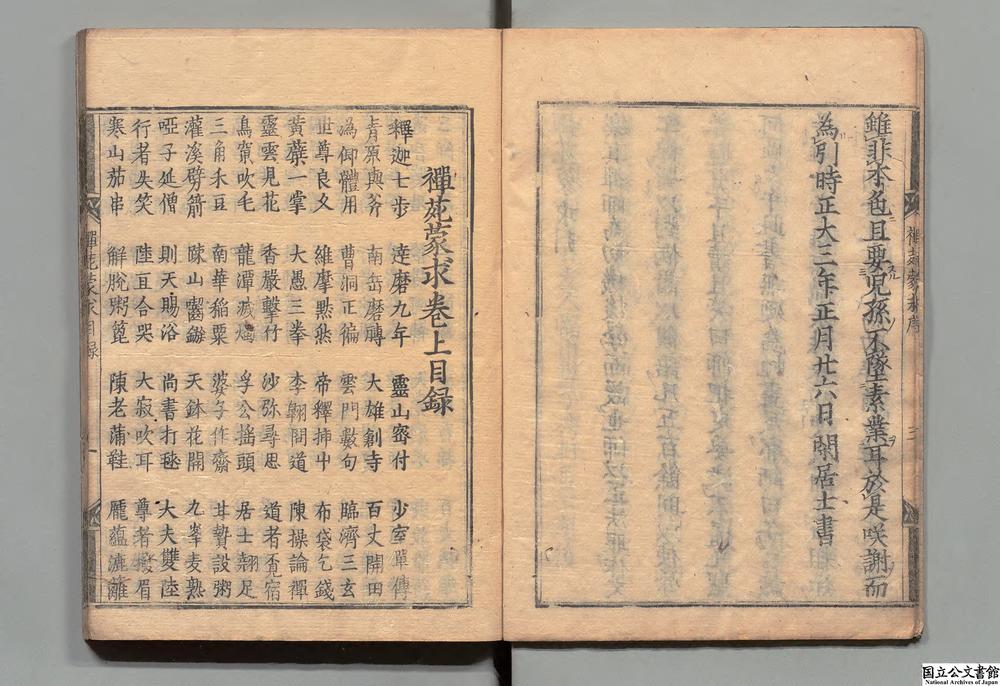 雖非本色且要児孫不墜素業耳於是咲謝而
為引時正大三年正月廿六日閑居士書
禅苑蒙求卷上目録
釋迦七歩 達磨九年 靈山密付 少室單傳
青原輿斧 南岳磨磚 大雄創寺 百丈開田
溈仰體用 曹洞正徧 雲門數句 臨濟三玄
世尊良久 維摩黙然 帝釋插艸 布袋乞錢
黄蘗一掌 大愚三拳 李翱問道 陳操論禪
靈雲見花 香嚴擊竹 沙弥尋思 道者兖宿
鳥窠吹毛 龍潭滅燭 孚公揺頭 居士翹足
三角禾豆 南華稲粟 婆子作齋 甘贄設粥
灌溪劈箭 疎山齧鏃 天鉢花開 九峯麦熟
啞子延僧 則天賜浴 尚書打毬 大夫雙陸
行者失笑 陸亘合哭 大寂吹耳 尊者撥眉
寒山茄串 解脫粥篦 陳老蒲鞋 龐蘊漉籬
禪苑蒙求目録
一
國立公文書館
National Archives of Japan